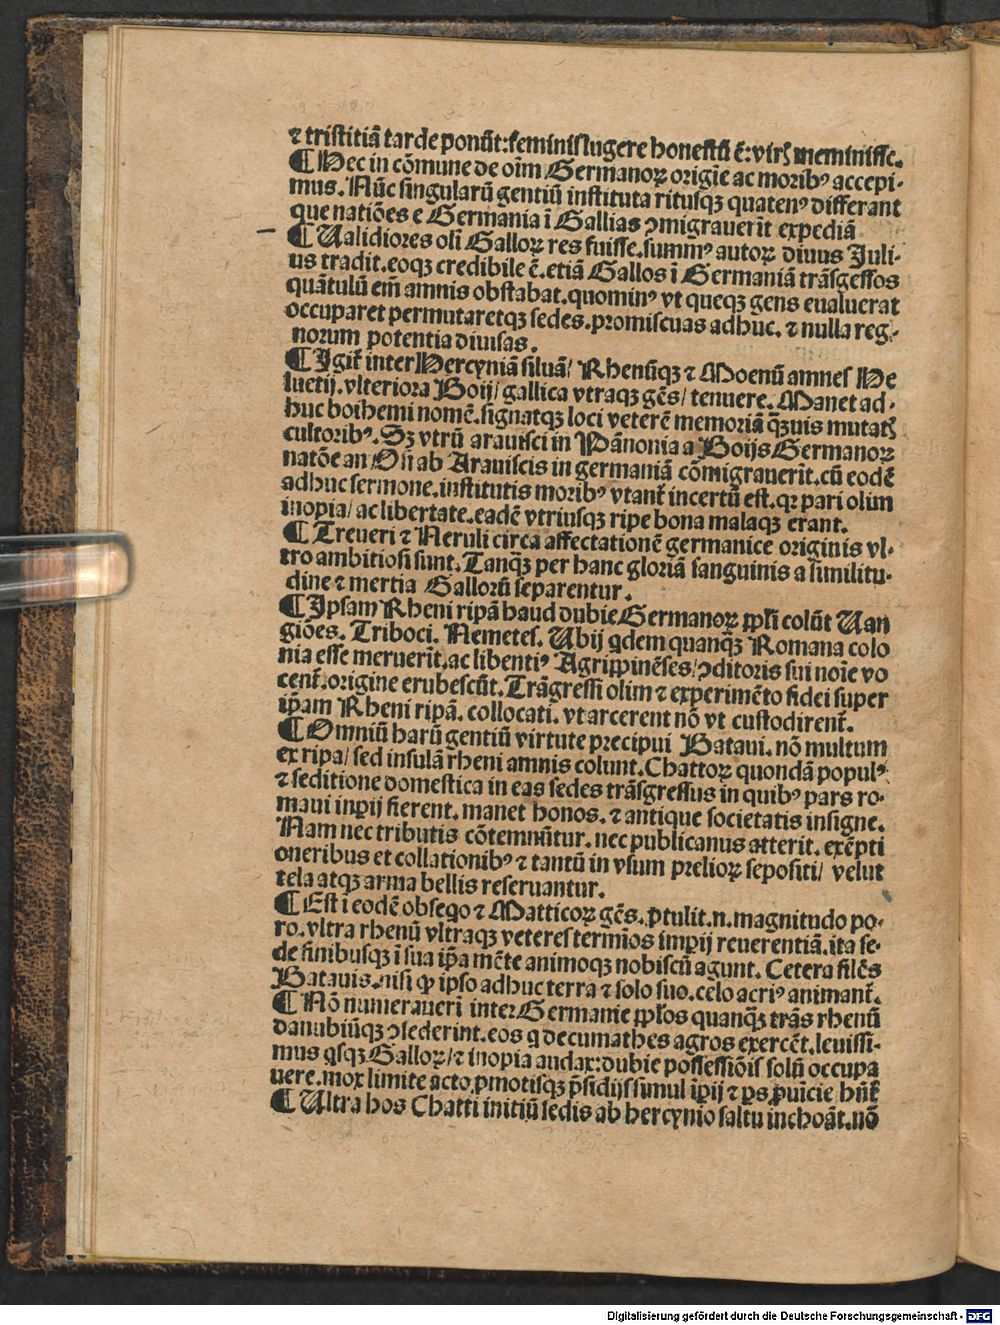 ⁊ tristitiā tarde ponūt:feminis lugere honestū ē:virꝭ meminisse.
¶ Hec in cōmune de oīm Germanoꝝ origīe ac moribꝰ accepi-
mus. Nūc singularū gentiū instituta ritusqꝫ quatenꝰ differant
que natiōes e Germania ī Gallias ↄmigrauerīt expediā
¶ Ualidiores olī Galloꝝ res fuisse.summꝰ autoꝝ diuus Juli-
us tradit.eoqꝫ credibile ē.etiā Gallos ī Germaniā trāsgessos
quātulū em̄ amnis obstabat.quominꝰ vt queqꝫ gens eualuerat
occuparet permutaretqꝫ sedes.promiscuas adhuc. ⁊ nulla reg-
norum potentia diuisas.
¶ Igit̄ inter Hercyniā siluā/ Rhenūqꝫ ⁊ Moenū amnes He
luetij.vlteriora Boij/ gallica vtraqꝫ gēs/ tenuere. Manet ad-
huc boihemi nomē.signatqꝫ loci veterē memoriā q̄ꝫuis mutatꝭ
cultoribꝰ. Sꝫ vtrū arauisci in Pānonia a Boijs Germanoꝝ
natōe an Osi ab Arauiscis in germaniā cōmigrauerīt.cū eodē
adhuc sermone.institutis moribꝰ vtant̄ incertū est.qꝛ pari olim
inopia/ ac libertate.eadē vtriusqꝫ ripe bona malaqꝫ erant.
¶ Treueri ⁊ Neruli circa affectationē germanice originis vl-
tro ambitiosi sunt.Tanqꝫ per hanc gloriā sanguinis a similitu-
dine ⁊ inertia Gallorū separentur.
¶ Ipsam Rheni ripā haud dubie Germanoꝝ pp̄li colūt Uan
giōes. Triboci. Nemetes. Ubij qdem quanqꝫ Romana colo
nia esse meruerīt.ac libentiꝰ Agrippinēses/ↄditoris sui noīe vo
cent̄.origine erubescūt.Trāgressi olim ⁊ experimēto fidei super
ip̄am Rheni ripā. collocati. vt arcerent nō vt custodirent̄.
¶ Omniū harū gentiū virtute precipui Bataui. nō multum
ex ripa/ sed insulā rheni amnis colunt.Chattoꝝ quondā populꝰ
⁊ seditione domestica in eas sedes trāsgressus in quibꝰ pars ro-
mani inpij fierent. manet honos. ⁊ antique societatis insigne.
Nam nec tributis cōtemnūtur. nec publicanus atterit. exēpti
oneribus et collationibꝰ ⁊ tantū in vsum prelioꝝ sepositi/ velut
tela atqꝫ arma bellis reseruantur.
¶ Est ī eodē obseqo ⁊ Matticoꝝ gēs. ꝓtulit.n.magnitudo po-
ro.vltra rhenū vltraqꝫ veteres termīos imp̄ij reuerentiā.ita se-
de finibusqꝫ ī sua ip̄a mēte animoqꝫ nobiscū agunt. Cetera silēs
Batauis.nisi qꝙ ipso adhuc terra ⁊ solo suo.celo acriꝰ animant̄.
¶ Nō numerauerī inter Germanie pp̄los quanqꝫ trās rhenū
danubiūqꝫ ↄsederint.eos q decumathes agros exercēt.leuissi-
mus qsqꝫ Galloꝝ/⁊ inopia audax:dubie possessiōis solū occupa
uere.mox limite acto ꝓmotisqꝫ p̄sidijs simul īpij ⁊ ꝑs ꝓuīcie hn̄t̄
¶ Ultra hos Chatti initiū sedis ab hercynio saltu inchoāt.nō
Digitalisierung gefördert durch die Deutsche Forschungsgemeinschaft - DFG